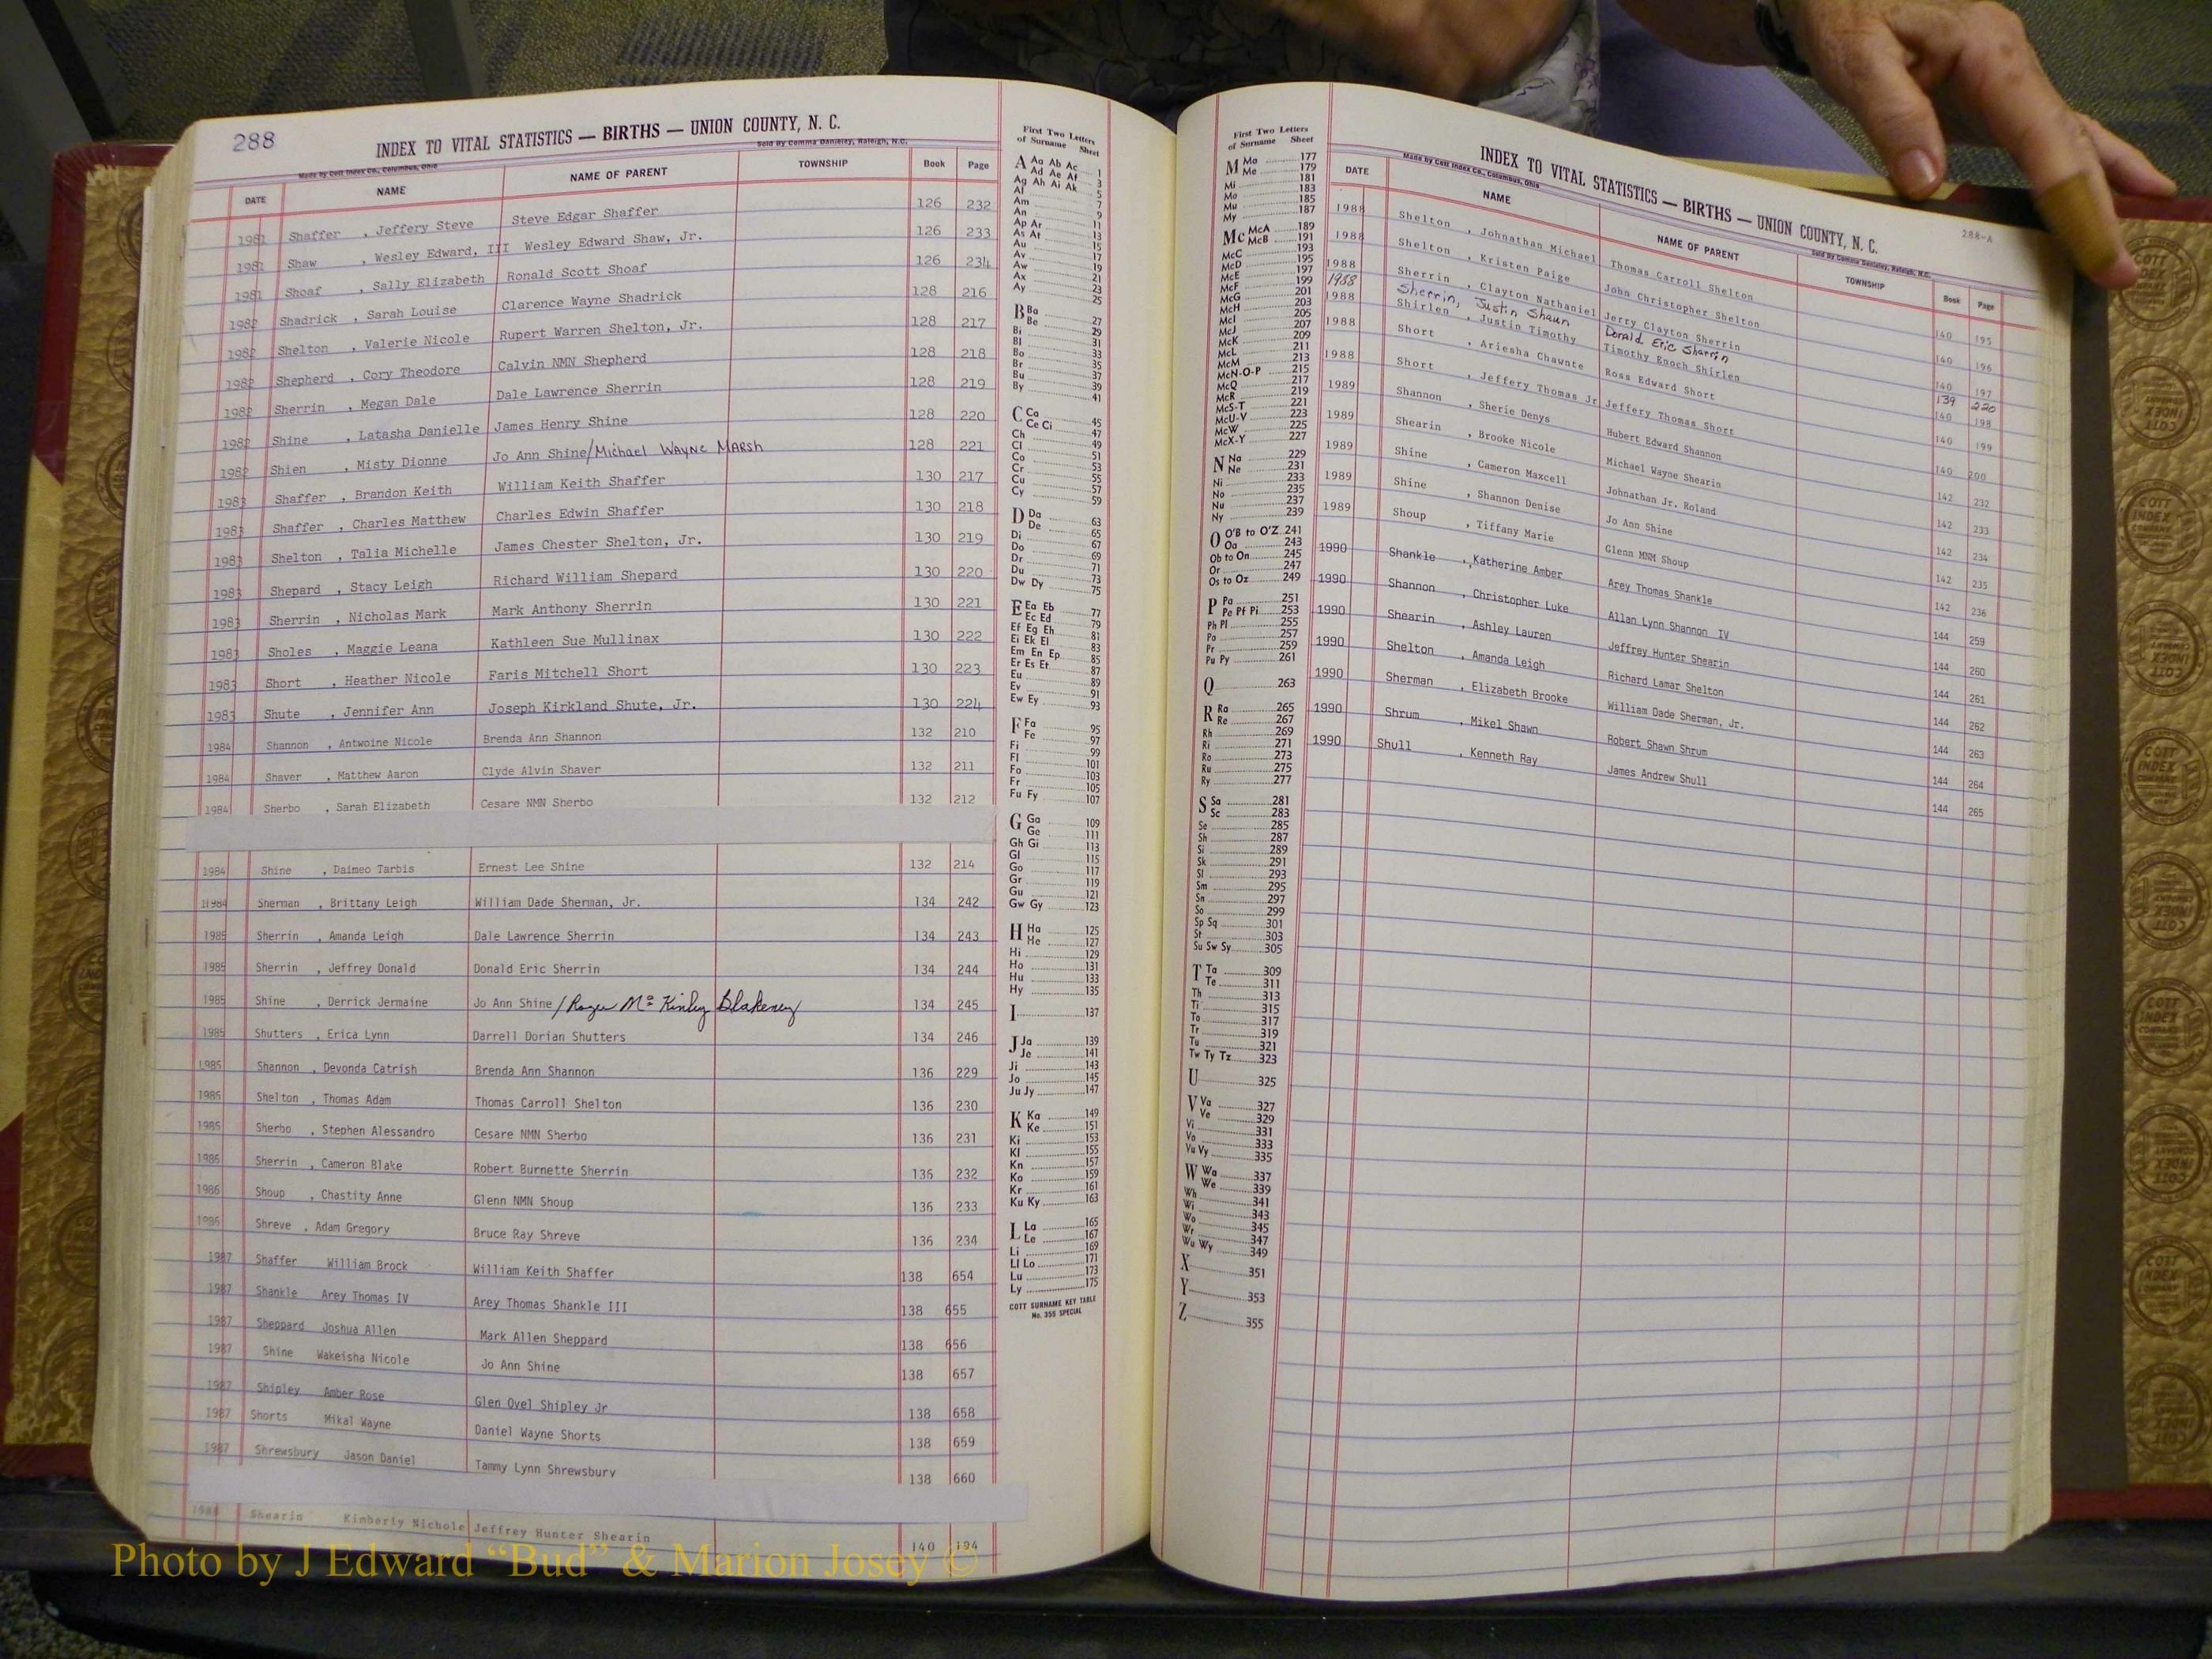 288
INDEX TO VITAL STATISTICS — BIRTHS — UNION COUNTY, N. C.
Made by Cott Index Co., Columbus, Ohio
Sold By Comma Danieley, Raleigh, N.C.
DATE NAME NAME OF PARENT TOWNSHIP Book Page
1981 Shaffer , Jeffery Steve Steve Edgar Shaffer 126 232
1981 Shaw , Wesley Edward, III Wesley Edward Shaw, Jr. 126 233
1981 Shoaf , Sally Elizabeth Ronald Scott Shoaf 126 234
1982 Shadrick , Sarah Louise Clarence Wayne Shadrick 128 216
1982 Shelton , Valerie Nicole Rupert Warren Shelton, Jr. 128 217
1982 Shepherd , Cory Theodore Calvin NMN Shepherd 128 218
1982 Sherrin , Megan Dale Dale Lawrence Sherrin 128 219
1982 Shine , Latasha Danielle James Henry Shine 128 220
1982 Shien , Misty Dionne Jo Ann Shine/Michael WAYNE MARSH 128 221
1983 Shaffer , Brandon Keith William Keith Shaffer 130 217
1983 Shaffer , Charles Matthew Charles Edwin Shaffer 130 218
1983 Shelton , Talia Michelle James Chester Shelton, Jr. 130 219
1983 Shepard , Stacy Leigh Richard William Shepard 130 220
1983 Sherrin , Nicholas Mark Mark Anthony Sherrin 130 221
1983 Sholes , Maggie Leana Kathleen Sue Mullinax 130 222
1983 Short , Heather Nicole Faris Mitchell Short 130 223
1983 Shute , Jennifer Ann Joseph Kirkland Shute, Jr. 130 224
1984 Shannon , Antwoine Nicole Brenda Ann Shannon 132 210
1984 Shaver , Matthew Aaron Clyde Alvin Shaver 132 211
1984 Sherbo , Sarah Elizabeth Cesare NMN Sherbo 132 212
1984 Shine , Daimeo Tarbis Ernest Lee Shine 132 214
1984 Sherman , Brittany Leigh William Dade Sherman, Jr. 134 242
1985 Sherrin , Amanda Leigh Dale Lawrence Sherrin 134 243
1985 Sherrin , Jeffrey Donald Donald Eric Sherrin 134 244
1985 Shine , Derrick Jermaine Jo Ann Shine/Roger Mc Kinley Blakeney 134 245
1985 Shutters , Erica Lynn Darrell Dorian Shutters 134 246
1985 Shannon , Devonda Catrish Brenda Ann Shannon 136 229
1985 Shelton , Thomas Adam Thomas Carroll Shelton 136 230
1985 Sherbo , Stephen Alessandro Cesare NMN Sherbo 136 231
1986 Sherrin , Cameron Blake Robert Burnette Sherrin 136 232
1986 Shoup , Chastity Anne Glenn NMN Shoup 136 233
1986 Shreve , Adam Gregory Bruce Ray Shreve 136 234
1987 Shaffer William Brock William Keith Shaffer 138 654
1987 Shankle Arey Thomas IV Arey Thomas Shankle III 138 655
1987 Sheppard Joshua Allen Mark Allen Sheppard 138 656
1987 Shine Wakeisha Nicole Jo Ann Shine 138 657
1987 Shipley Amber Rose Glen Ovel Shipley Jr 138 658
1987 Shorts Mikal Wayne Daniel Wayne Shorts 138 659
1987 Shrewsbury Jason Daniel Tammy Lynn Shrewsbury 138 660
1988 Shearin Kimberly Nichole Jeffrey Hunter Shearin 140 194
First Two Letters
of Surname Sheet
A Aa Ab Ac 1
Ad Ae Af 3
Ag Ah Ai Ak 5
Al 7
Am 9
An 11
Ap Ar 13
As At 15
Au 17
Av 19
Aw 21
Ax 23
Ay 25
B Ba 27
Be 29
Bi 31
Bl 33
Bo 35
Br 37
Bu 39
By 41
C Ca 45
Ce Ci 47
Ch 49
Cl 51
Co 53
Cr 55
Cu 57
Cy 59
D Da 63
De 65
Di 67
Do 69
Dr 71
Du 73
Dw Dy 75
E Ea Eb 77
Ec Ed 79
Ef Eg Eh 81
Ei Ek El 83
Em En Ep 85
Er Es Et 87
Eu 89
Ev 91
Ew Ey 93
F Fa 95
Fe 97
Fi 99
Fl 101
Fo 103
Fr 105
Fu Fy 107
G Ga 109
Ge 111
Gh Gi 113
Gl 115
Go 117
Gr 119
Gu 121
Gw Gy 123
H Ha 125
He 127
Hi 129
Ho 131
Hu 133
Hy 135
I 137
J Ja 139
Je 141
Ji 143
Jo 145
Ju Jy 147
K Ka 149
Ke 151
Ki 153
Kl 155
Kn 157
Ko 159
Kr 161
Ku Ky 163
L La 165
Le 167
Li 169
Ll Lo 171
Lu 173
Ly 175
COTT SURNAME KEY TABLE
No. 355 SPECIAL
First Two Letters
of Surname Sheet
M Ma 177
Me 179
Mi 181
Mo 183
Mu 185
My 187
Mc McA 189
McB 191
McC 193
McD 195
McE 197
McF 199
McG 201
McH 203
McI 205
McJ 207
McK 209
McL 211
McM 213
McN-O-P 215
McQ 217
McR 219
McS-T 221
McU-V 223
McW 225
McX-Y 227
N Na 229
Ne 231
Ni 233
No 235
Nu 237
Ny 239
O O'B to O'Z 241
Oa 243
Ob to On 245
Or 247
Os to Oz 249
P Pa 251
Pe Pf Pi 253
Ph Pl 255
Po 257
Pr 259
Pu Py 261
Q 263
R Ra 265
Re 267
Rh 269
Ri 271
Ro 273
Ru 275
Ry 277
S Sa 281
Sc 283
Se 285
Sh 287
Si 289
Sk 291
Sl 293
Sm 295
Sn 297
So 299
Sp Sq 301
St 303
Su Sw Sy 305
T Ta 309
Te 311
Th 313
Ti 315
To 317
Tr 319
Tu 321
Tw Ty Tz 323
U 325
V Va 327
Ve 329
Vi 331
Vo 333
Vu Vy 335
W Wa 337
We 339
Wh 341
Wi 343
Wo 345
Wr 347
Wu Wy 349
X 351
Y 353
Z 355
288-A
INDEX TO VITAL STATISTICS — BIRTHS — UNION COUNTY, N. C.
Made by Cott Index Co., Columbus, Ohio
Sold By Comma Danieley, Raleigh, N.C.
DATE NAME NAME OF PARENT TOWNSHIP Book Page
1988 Shelton , Johnathan Michael Thomas Carroll Shelton 140 195
1988 Shelton , Kristen Paige John Christopher Shelton 140 196
1988 Sherrin , Clayton Nathaniel Jerry Clayton Sherrin 140 197
1988 Sherrin, Justin Shaun Donald Eric Sherrin 139 220
1988 Shirlen , Justin Timothy Timothy Enoch Shirlen 140 198
1988 Short , Ariesha Chawnte Ross Edward Short 140 199
1988 Short , Jeffery Thomas Jr Jeffery Thomas Short 140 200
1989 Shannon , Sherie Denys Hubert Edward Shannon 142 232
1989 Shearin , Brooke Nicole Michael Wayne Shearin 142 233
1989 Shine , Cameron Maxcell Johnathan Jr. Roland 142 234
1989 Shine , Shannon Denise Jo Ann Shine 142 235
1989 Shoup , Tiffany Marie Glenn MNM Shoup 142 236
1990 Shankle , Katherine Amber Arey Thomas Shankle 144 259
1990 Shannon , Christopher Luke Allan Lynn Shannon IV 144 260
1990 Shearin , Ashley Lauren Jeffrey Hunter Shearin 144 261
1990 Shelton , Amanda Leigh Richard Lamar Shelton 144 262
1990 Sherman , Elizabeth Brooke William Dade Sherman, Jr. 144 263
1990 Shrum , Mikel Shawn Robert Shawn Shrum 144 264
1990 Shull , Kenneth Ray James Andrew Shull 144 265
COTT INDEX COMPANY
Photo by J Edward “Bud” & Marion Josey ©